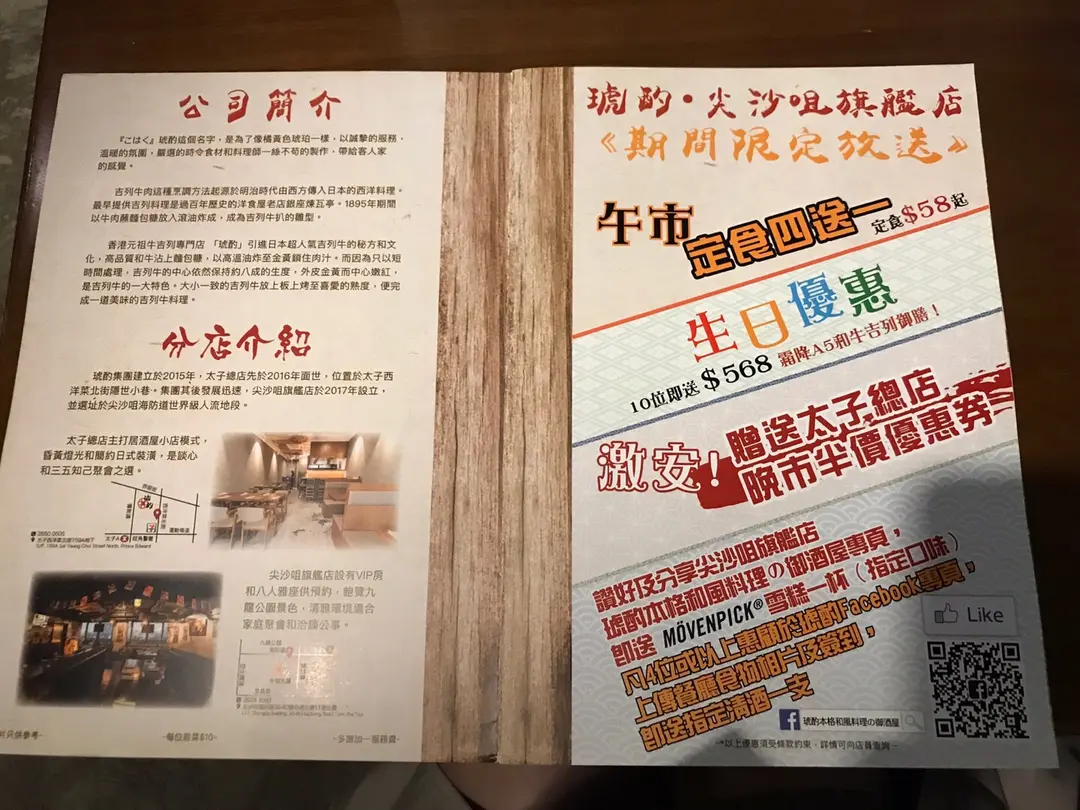 公司簡介
『こはく』琥酌這個名字，是為了像橘黃色琥珀一樣，以誠摯的服務，
溫暖的氛圍，嚴選的時令食材和料理師一絲不苟的製作，帶給客人家
的感覺。
吉列牛肉這種烹調方法起源於明治時代由西方傳入日本的西洋料理。
最早提供吉列料理是過百年歷史的洋食屋老店銀座煉瓦亭。1895年期間
以牛肉蘸麵包糠放入滾油炸成，成為吉列牛扒的雛型。
香港元祖牛吉列專門店 「琥酌」引進日本超人氣吉列牛的秘方和文
化，高品質和牛沾上麵包糠，以高溫油炸至金黃鎖住肉汁。而因為只以短
時間處理，吉列牛的中心依然保持約八成的生度，外皮金黃而中心嫩紅，
是吉列牛的一大特色。大小一致的吉列牛放上板上烤至喜愛的熟度，便完
成一道美味的吉列牛料理。
分店介紹
琥酌集團建立於2015年，太子總店先於2016年面世，位置於太子西
洋菜北街隱世小巷。集團其後發展迅速，尖沙咀旗艦店於2017年設立，
並選址於尖沙咀海防道世界級人流地段。
太子總店主打居酒屋小店模式，
昏黃燈光和簡約日式裝潢，是談心
和三五知己聚會之選。
運動場道
太子A
旺角警署
尖沙咀旗艦店設有VIP房
和八人雅座供預約，飽覽九
龍公園景色，清雅環境適合
家庭聚會和洽談公事。
只供參考-
-每位前菜$10-
-多謝加一服務費-
琥酌・尖沙咀旗艦店
《期間限定放送》
午市 定食四送一 定食$58起
生日優惠
10位即送 $568 霜降A5和牛吉列御膳！
激安! 贈送太子總店
晚市半價優惠券
讚好及分享尖沙咀旗艦店
琥酌本格和風料理の御酒屋專頁，
即送 MÖVENPICK® 雪糕一杯（指定口味）
凡4位或以上惠顧於琥酌Facebook專頁，
上傳餐廳食物相片及簽到，
即送指定清酒一支
Like
琥酌本格和風料理の御酒屋
-*以上優惠須受條款約束，詳情可向店員查詢-